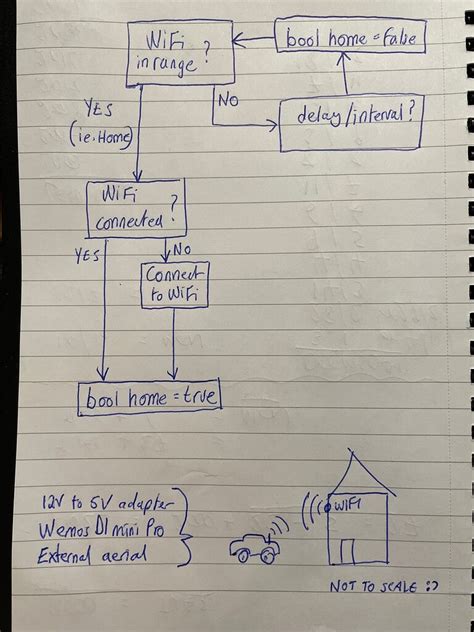 WiFi
in range ?
bool home = false
NO
delay/interval?
YES
(ie. Home)
WiFi
connected ?
YES
NO
Connect
to WiFi
bool home = true
12V to 5V adapter
Wemos D1 mini Pro
External aerial
WiFi
NOT TO SCALE :)